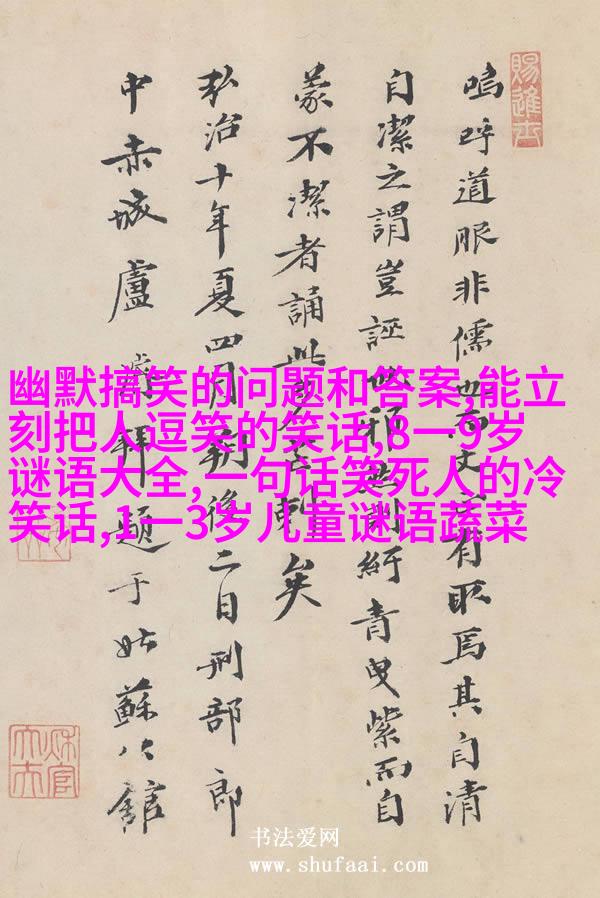 賜進士
嗚呼道服非儒也而文正有取焉其自清
自潔之謂豈誣也邪無則紆青曳紫而自
蒙不潔者誦此矣
弘治十年夏四月朔後二日刑部郎
中赤城盧拜題于姑蘇公館
幽默搞笑的问题和答案,能立
刻把人逗笑的笑话,8一9岁
谜语大全,一句话笑死人的冷
笑话,1一3岁儿童谜语蔬菜
书法爱网
www.shufaai.com